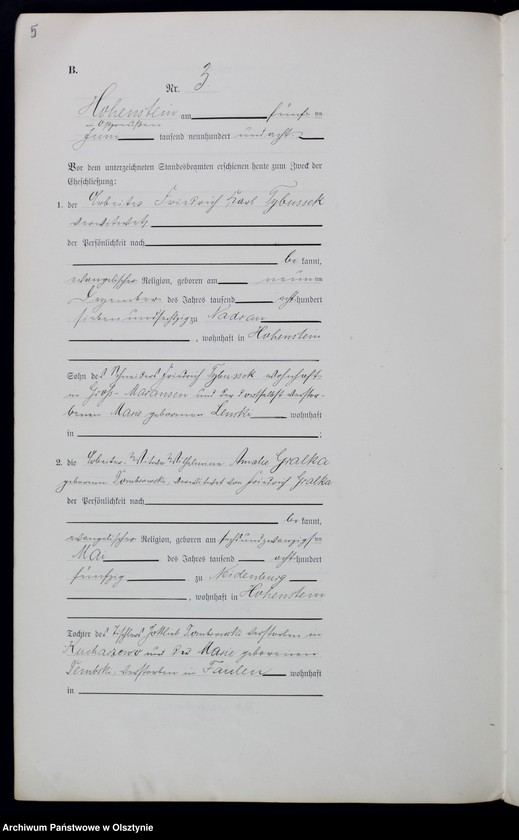 5
B.
Nr. 3
Hohenstein am fünften
in Ostpreußen
Juni tausend neunhundert und acht
Vor dem unterzeichneten Standesbeamten erschienen heute zum Zweck der
Eheschließung:
1. der Arbeiter Friedrich Karl Tybussek
verwitwet,
der Persönlichkeit nach
be kannt,
evangelischer Religion, geboren am neunten
Dezember des Jahres tausend acht hundert
siebenundsechzig zu Nadrau
, wohnhaft in Hohenstein
Sohn des Schneiders Friedrich Tybussek wohnhaft
in Groß-Maransen und der daselbst verstor-
benen Marie geborenen Lenski wohnhaft
in ;
2. die Arbeiter-Witwe Wilhelmine Amalie Gralka
geborenen Dombrowski, verwitwet von Friedrich Gralka
der Persönlichkeit nach
be kannt,
evangelischer Religion, geboren am sechsundzwanzigsten
Mai des Jahres tausend acht hundert
fünfzig zu Neidenburg
, wohnhaft in Hohenstein
Tochter des Tischlers Gottlieb Dombrowski verstorben in
und der Marie geborenen
verstorben in Faulen wohnhaft
in
Archiwum Państwowe w Olsztynie